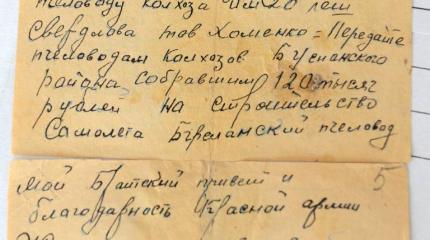 пчеловоду колхоза им 20 лет
Свердлова тов Хоменко = Передайте
пчеловодам колхозов Буспанского
района собравшим 120 тысяч
рублей на строительство
самолета Бурсланский пчеловод
мой Братский привет и 5
благодарность Красной армии